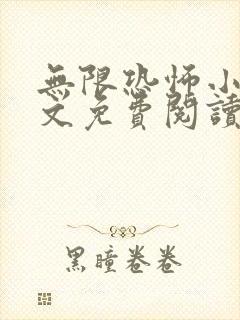 無限恐怖小
文免費閱讀
黑瞳卷卷